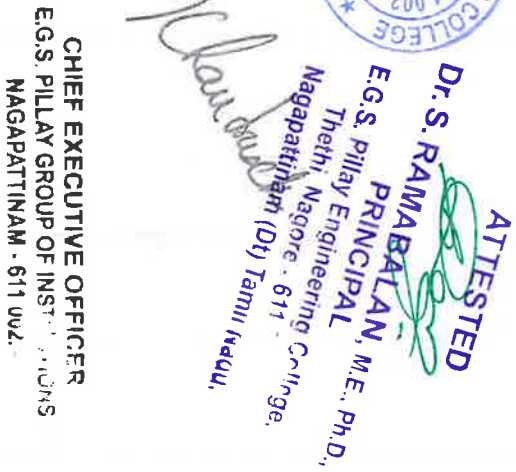 COLLEGE
002
ATTESTED
Dr. S. RAMABALAN, M.E., Ph.D.,
PRINCIPAL
E.G.S. Pillay Engineering College,
Thethi Nagore - 611
Nagapattinam (Dt) Tamil Nadu.
CHIEF EXECUTIVE OFFICER
E.G.S. PILLAY GROUP OF
NAGAPATTINAM - 611 002.